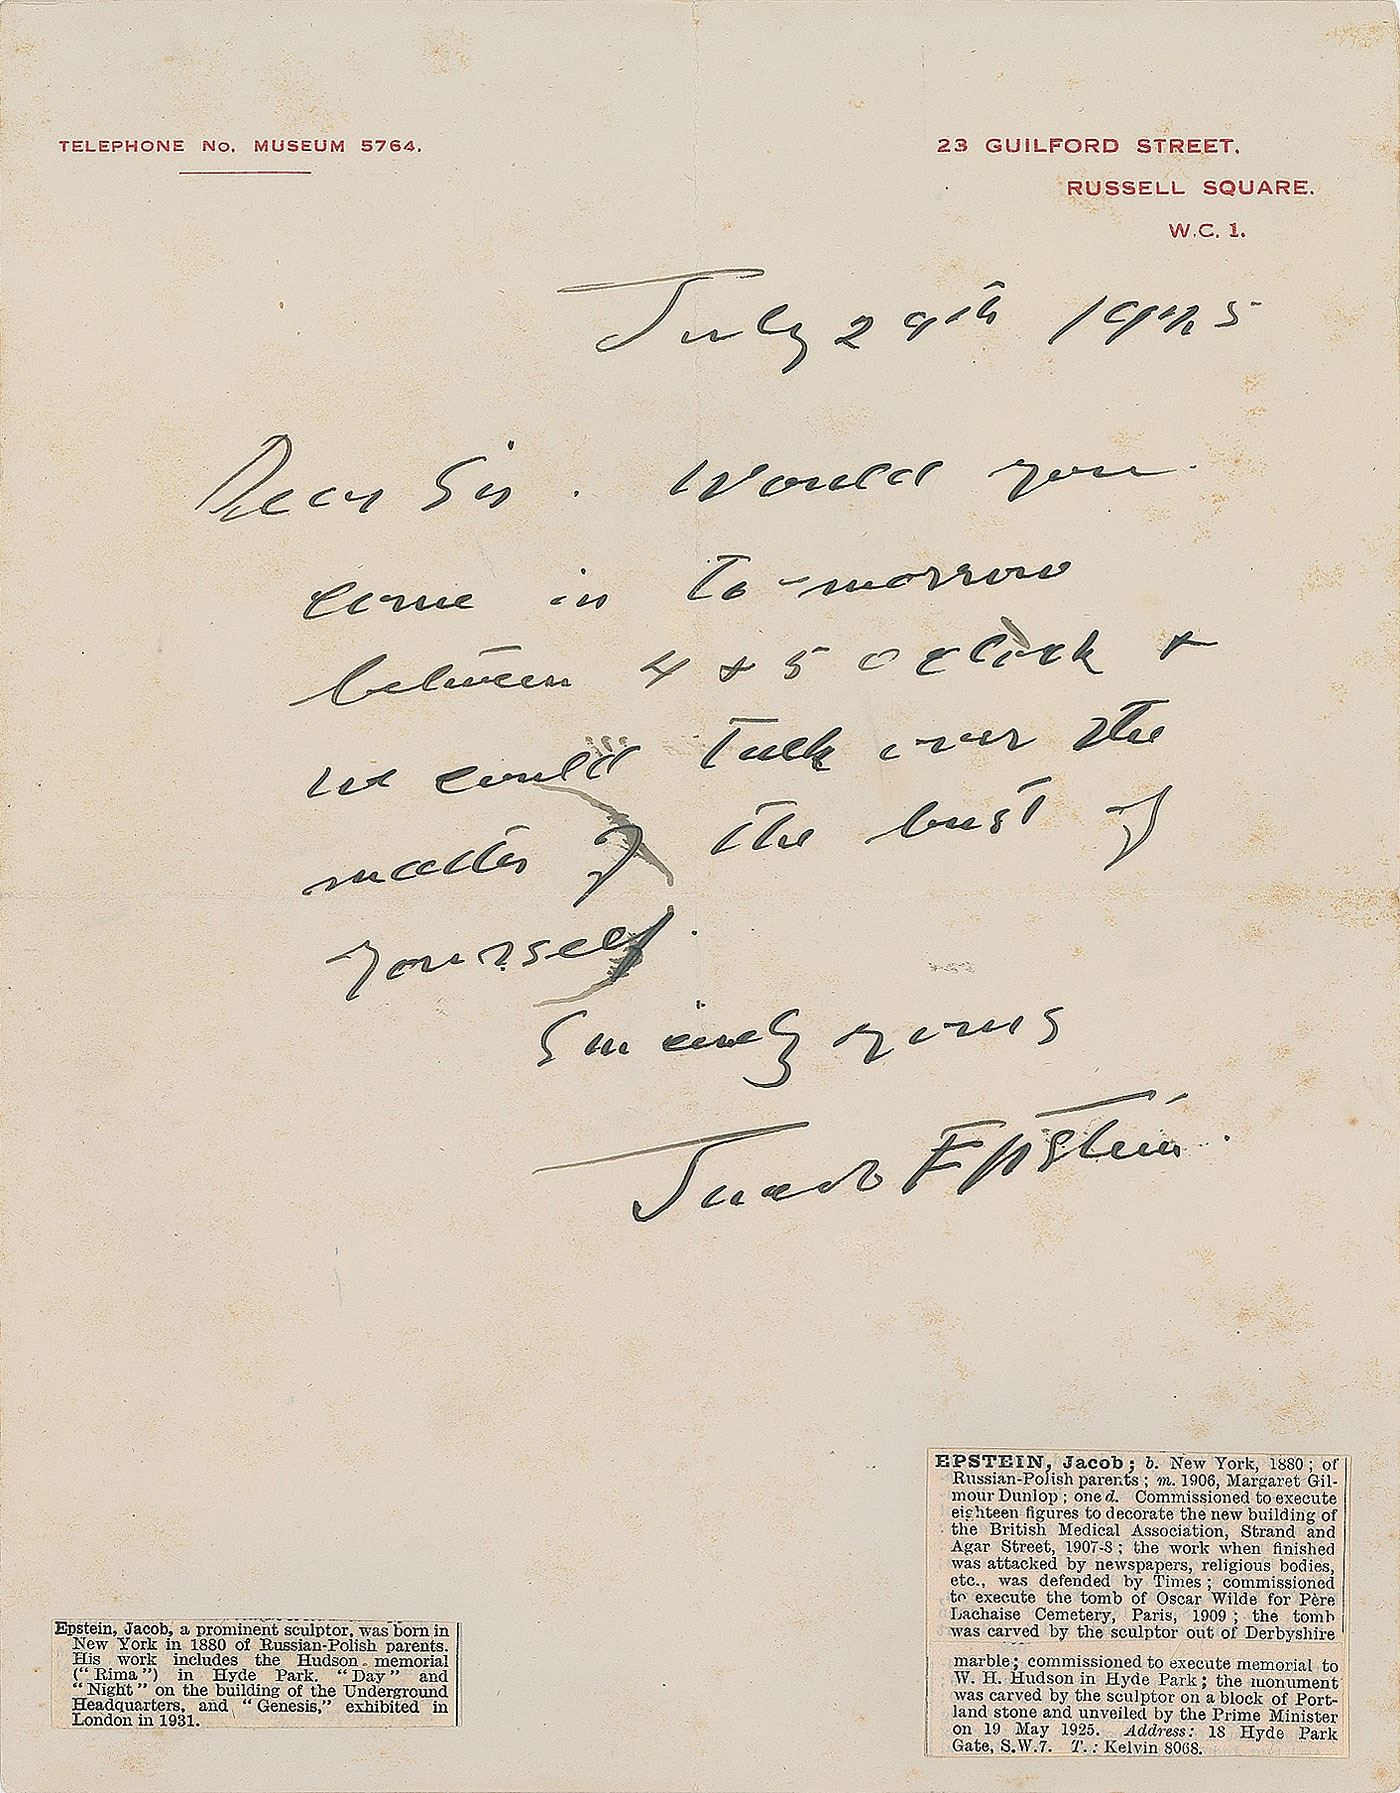 TELEPHONE No. MUSEUM 5764.
23 GUILFORD STREET.
RUSSELL SQUARE.
W.C. 1.
July 29th 1925
Dear Sir. Would you
come in to-morrow
between 4 & 5 o clock &
we could talk over the
matter of the bust of
yourself.
Sincerely yours
Jacob Epstein.
EPSTEIN, Jacob; b. New York, 1880; of
Russian-Polish parents; m. 1906, Margaret Gil-
mour Dunlop; one d. Commissioned to execute
eighteen figures to decorate the new building of
the British Medical Association, Strand and
Agar Street, 1907-8; the work when finished
was attacked by newspapers, religious bodies,
etc., was defended by Times; commissioned
to execute the tomb of Oscar Wilde for Père
Lachaise Cemetery, Paris, 1909; the tomb
was carved by the sculptor out of Derbyshire
marble; commissioned to execute memorial to
W. H. Hudson in Hyde Park; the monument
was carved by the sculptor on a block of Port-
land stone and unveiled by the Prime Minister
on 19 May 1925. Address: 18 Hyde Park
Gate, S.W.7. T.: Kelvin 8068.
Epstein, Jacob, a prominent sculptor, was born in
New York in 1880 of Russian-Polish parents.
His work includes the Hudson memorial
("Rima") in Hyde Park, "Day" and
"Night" on the building of the Underground
Headquarters, and "Genesis," exhibited in
London in 1931.